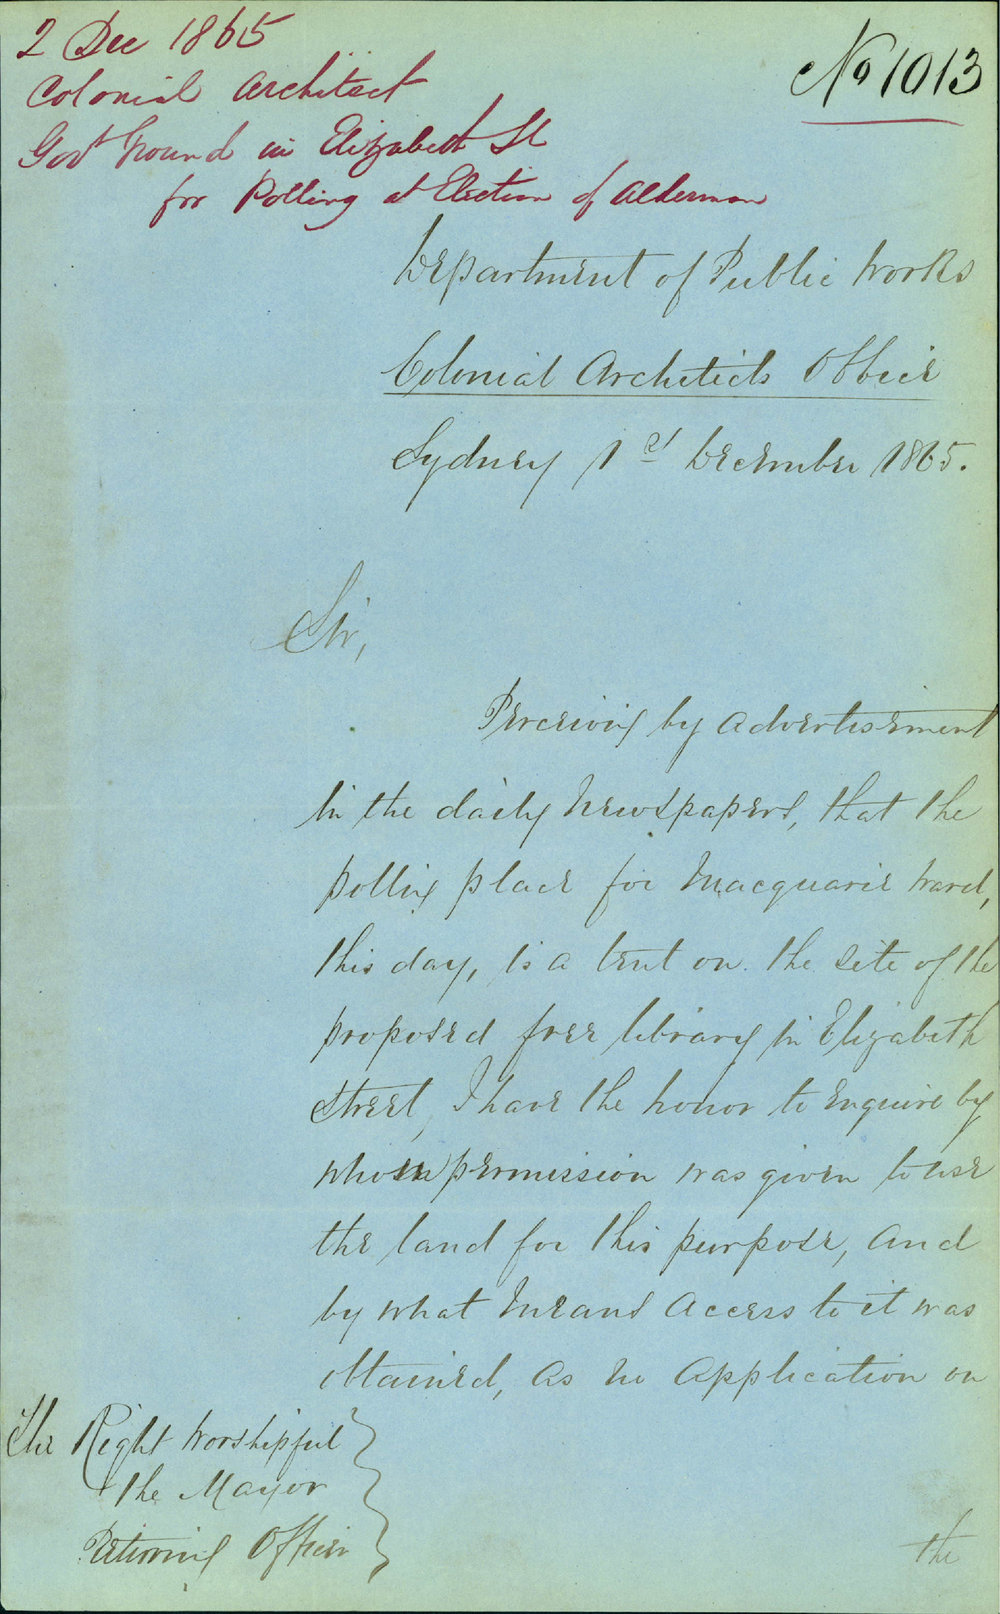 2 Dec 1865
Colonial Architect
Govt Ground in Elizabeth St
for Polling at Election of Alderman
No 1013
Department of Public Works
Colonial Architects Office
Sydney 1st December 1865.
Sir,
Perceiving by advertisement
in the daily Newspapers, that the
polling place for Macquarie Ward,
this day, is a tent on the site of the
proposed free library in Elizabeth
Street, I have the honor to enquire by
whose permission was given to use
the land for this purpose, and
by what means access to it was
obtained, as no application on
The Right Worshipful
the Mayor
Returning Officer
the